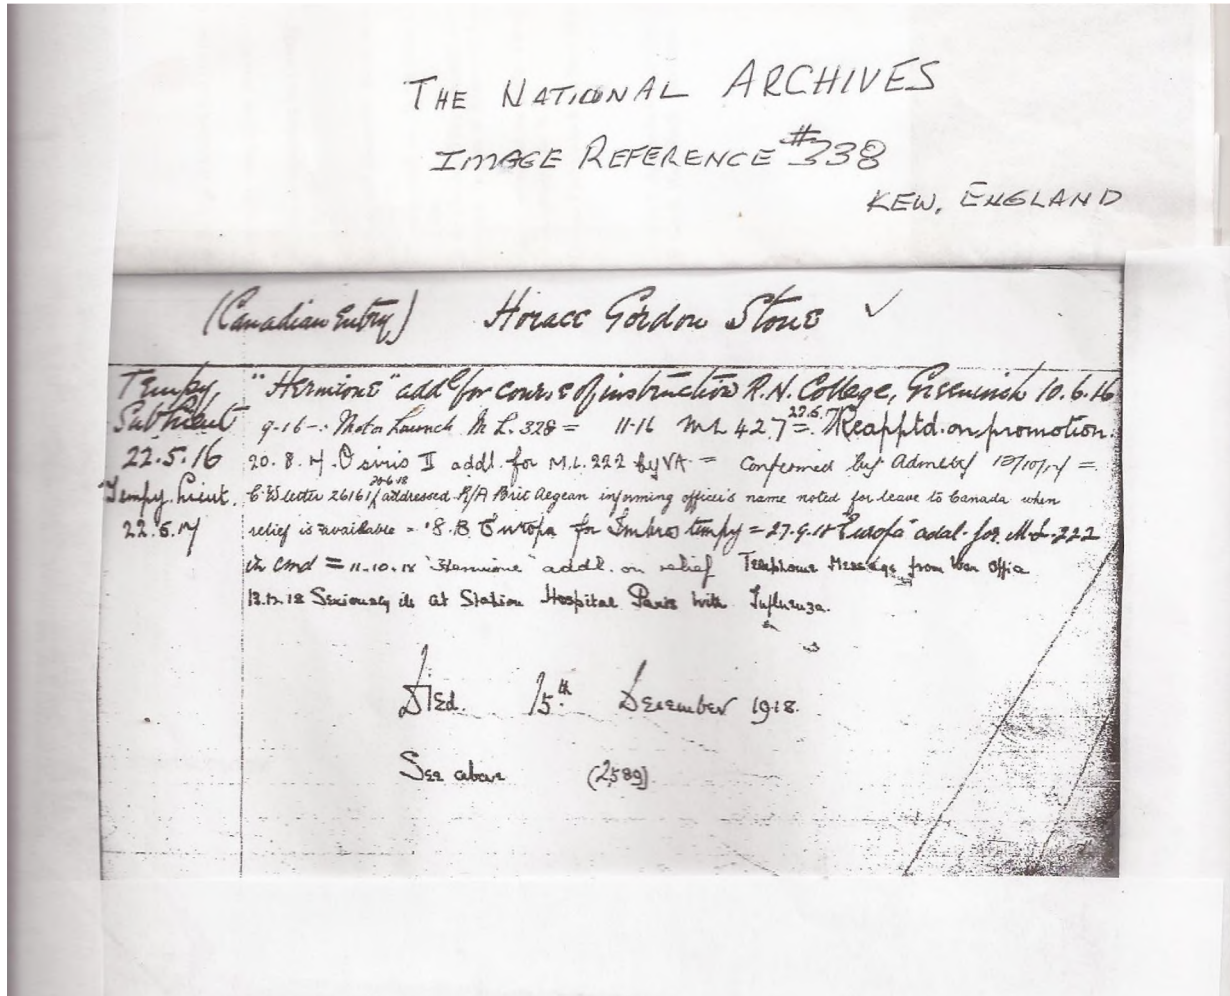 THE NATIONAL ARCHIVES
IMAGE REFERENCE #338
KEW, ENGLAND
(Canadian Entry) Horace Gordon Stone ✓
Tempy, "Hermione" addl for course of instruction R.N. College, Greenwich 10.6.16
Sub Lieut 9-16-: Motor Launch M L. 328 = 11-16 ML 427 = 22.5.17 Reapptd. on promotion.
22.5.16 20.8.17. Osiris II addl. for M.L. 222 by VA = Confirmed by Admlty 12/10/17 =
Tempy. Lieut. letter 26161/ 20-6-18 addressed R/A Brit Aegean informing officer's name noted for leave to Canada when
22.5.17 relief is available = '8.18 Europa for Imbros tempy = 27.9.18 Europa addl. for M.L. 222
in cmd = 11.10.18 'Hermione' addl. on relief Telephone Message from War Office
13.12.18 Seriously ill at Station Hospital Paris with Influenza.
Died. 15th December 1918.
See above (2589)